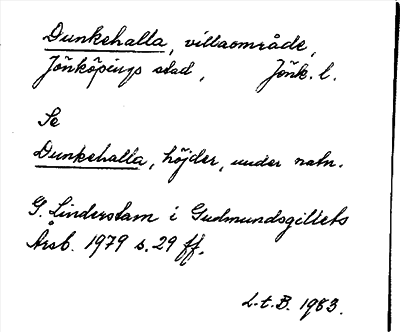 Dunkehalla, villaområde,
Jönköpings stad, Jönk. l.
Se
Dunkehalla, höjder, under natn.
G. Linderstam i Gudmundsgillets
Årsb. 1979 s. 29 ff.
L.t.B. 1983.